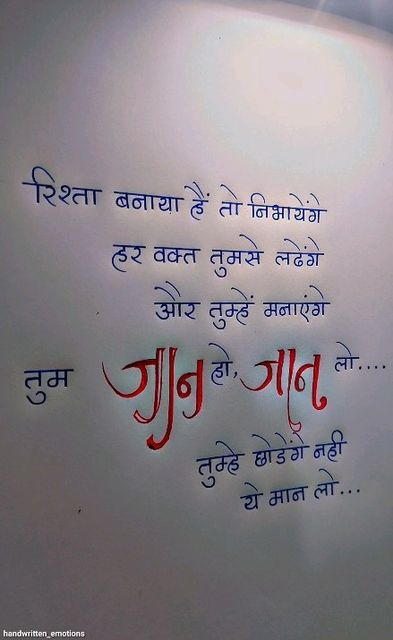 रिश्ता बनाया हैं तो निभायेंगे
हर वक्त तुमसे लढेंगे
और तुम्हें मनाएंगे
तुम जान हो, जान लो....
तुम्हे छोडेंगे नही
ये मान लो...
handwritten_emotions